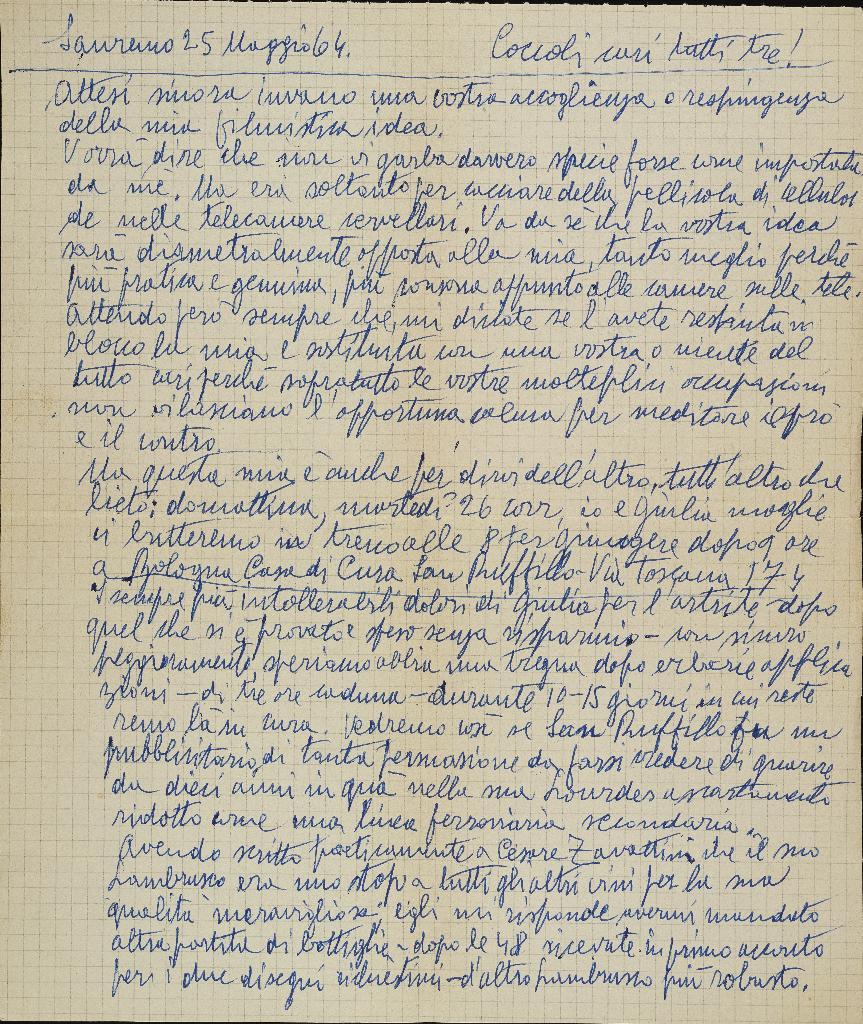 Sanremo 25 Maggio 64. Coccoli cari tutti tre!
Attesi sinora invano una vostra accoglienza o respingenza
della mia filmistica idea.
Vorrà dire che non vi garba davvero specie forse come impostata
da mè. Ma era soltanto per cacciare della pellicola di celluloi
de nelle telecamere cervellari. Va da sè che la vostra idea
sarà diametralmente opposta alla mia, tanto meglio perchè
più pratica e genuina, più consona appunto alle camere sulle tele.
Attendo però sempre che mi diciate se l'avete respinta in
blocco la mia e sostituita con una vostra o niente del
tutto cari perchè sopratutto le vostre molteplici occupazioni
non vi lasciano l'opportuna calma per meditare il prò
e il contro.
Ma questa mia è anche per dirvi dell'altro, tutt'altro che
lieto: domattina, martedì 26 corr, io e Giulia moglie
ci butteremo in treno alle 8 per giungere dopo 9 ore
a Bologna Casa di Cura San Ruffillo - Via Toscana 174
I sempre più intollerabili dolori di Giulia per l'artrite - dopo
quel che si è provato e speso senza risparmio - con sicuro
peggioramento, speriamo abbia una tregua dopo erbarie applica
zioni - di tre ore caduna - durante 10-15 giorni in cui reste
remo là in cura. Vedremo così se San Ruffillo fu un
pubblicitario di tanta persuasione da farsi credere di guarire
da dieci anni in quà nella sua Lourdes
ridotto come una linea ferroviaria secondaria.
Avendo scritto poeticamente a Cesare Zavattini che il suo
Lambrusco era uno stop a tutti gli altri vini per la sua
qualità meravigliosa, egli mi risponde avermi mandato
altra partita di bottiglie - dopo le 48 ricevute in primo acconto
per i due disegni richiestimi - d'altro Lambrusco più robusto.